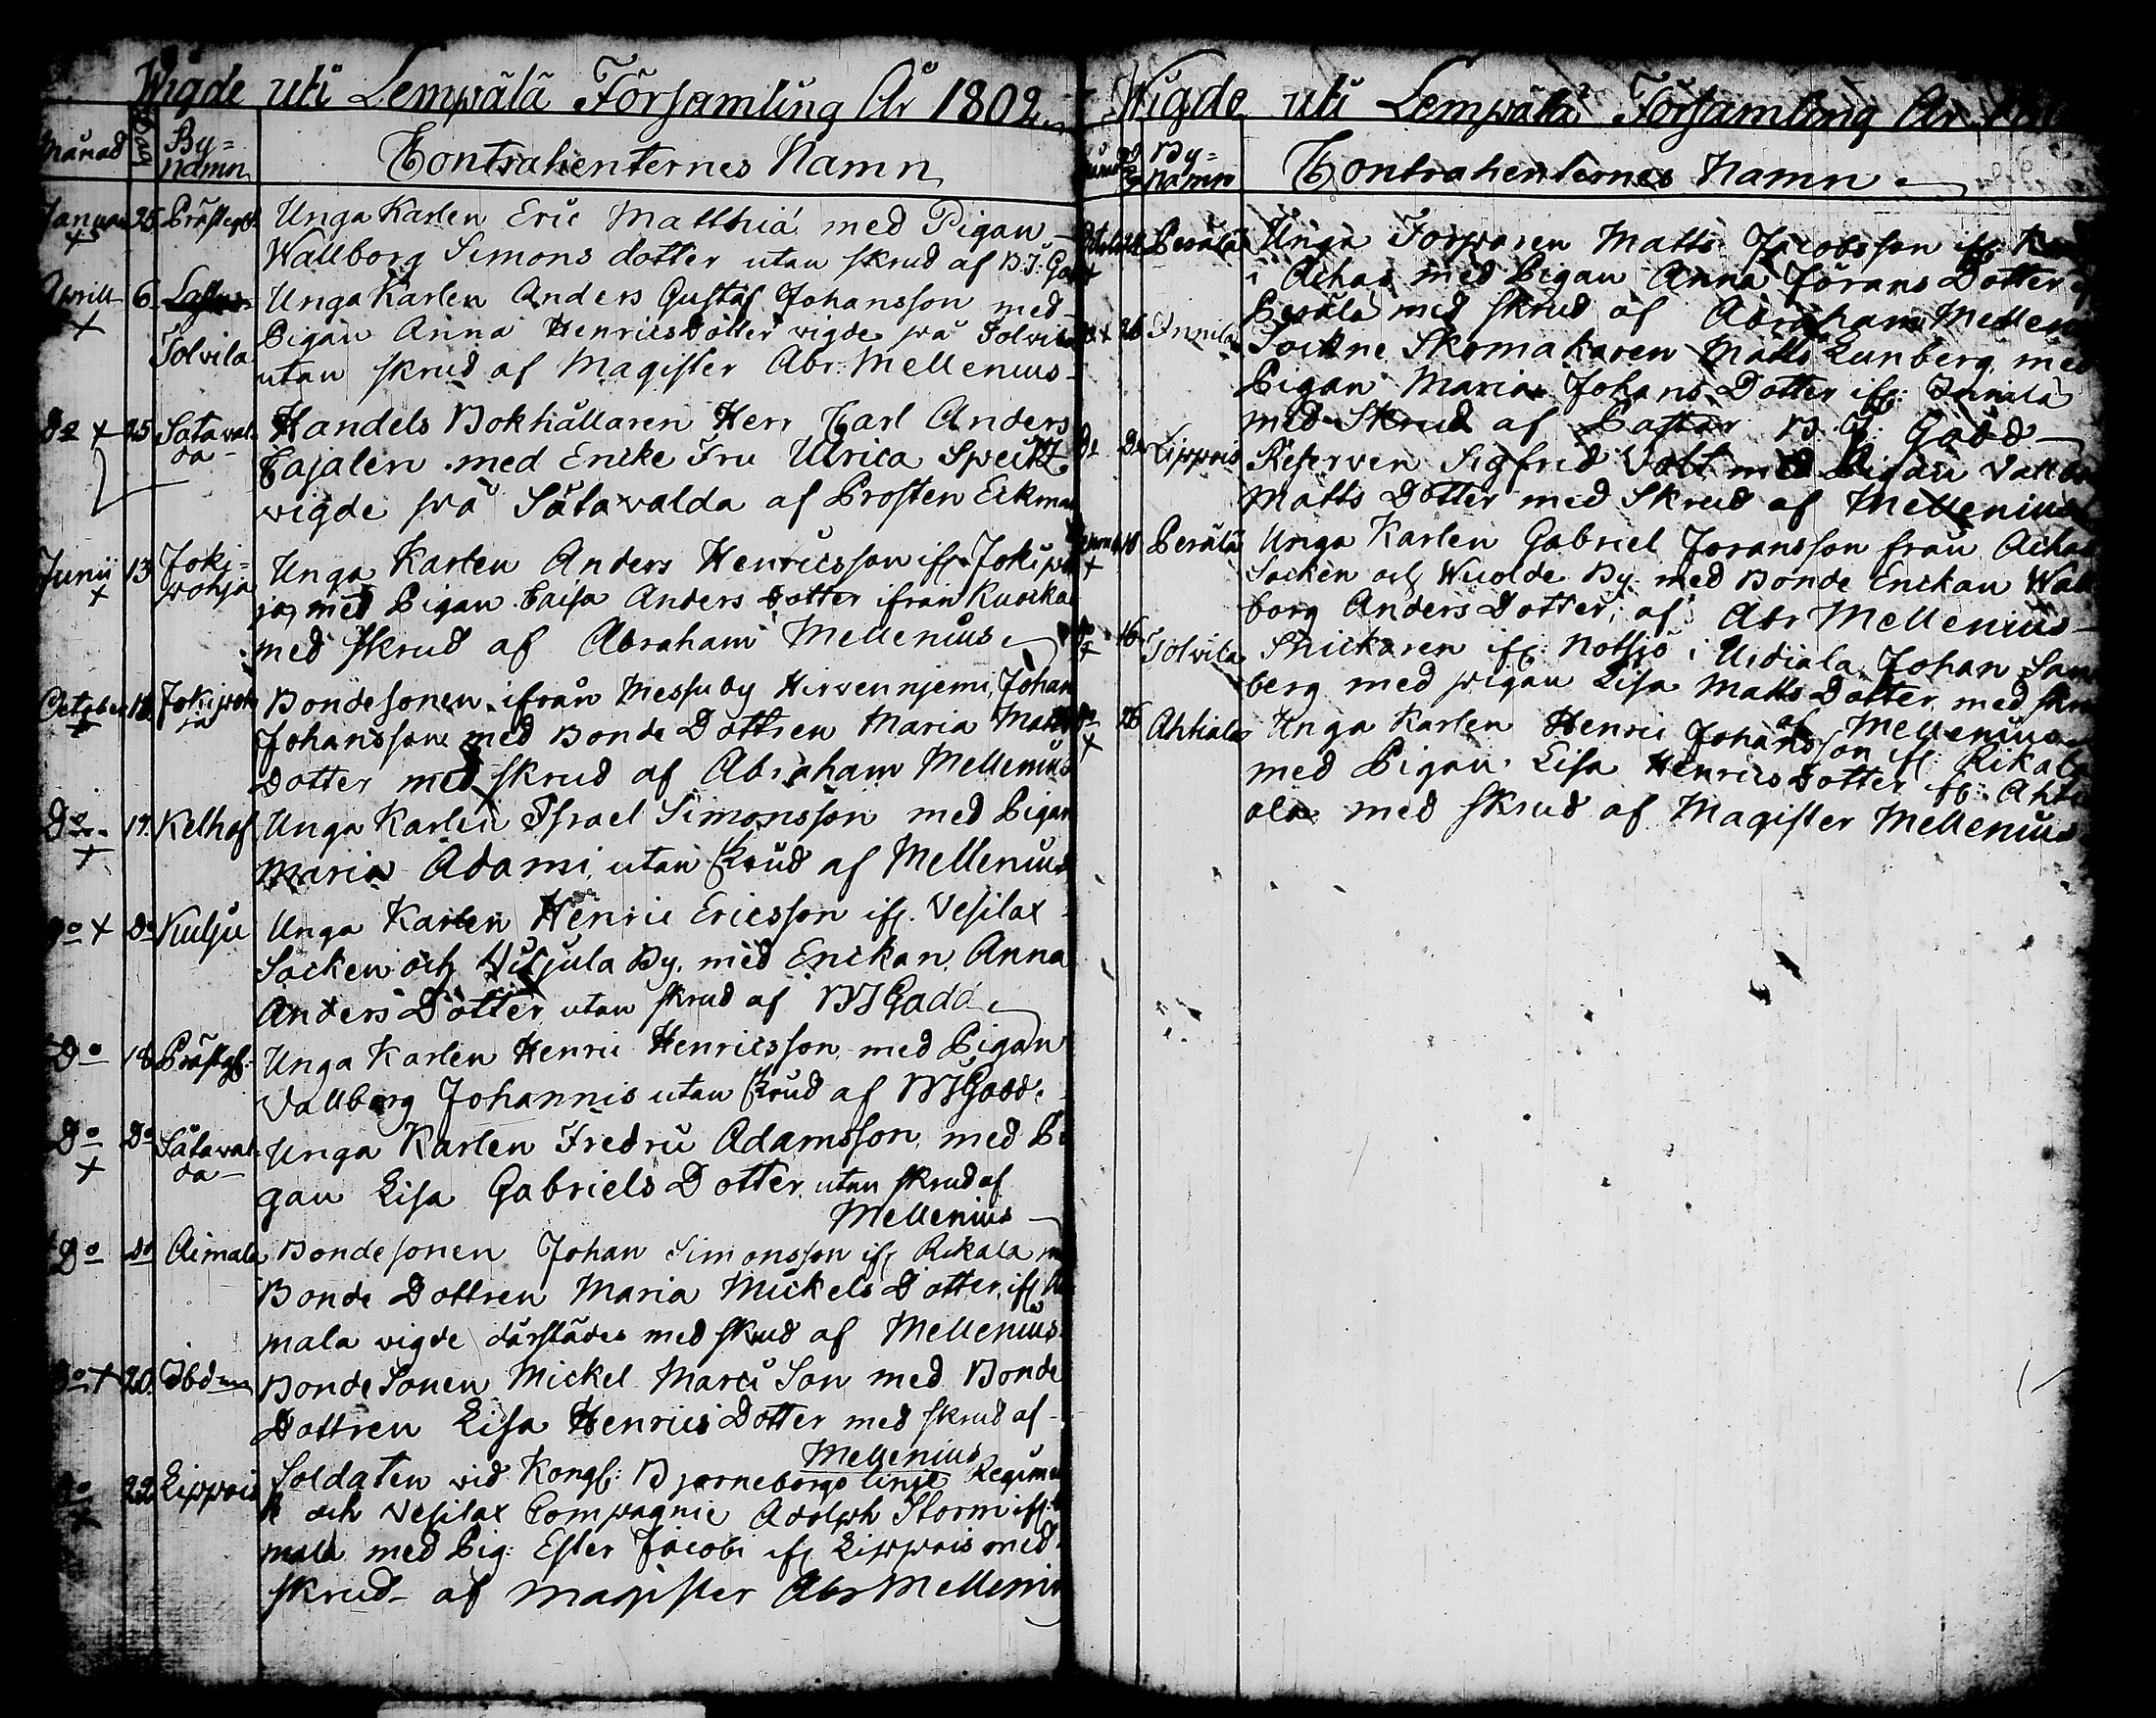 Wigde uti Lempälä Församling År 1802
Månad Dag By=namn Contrahenternes Namn
Januar 25 Prästgd. Unga Karlen Eric Matthiä med Pigan
Wallborg Simons dotter utan skrud af B.J. Ga
Aprill 6 Unga Karlen Anders Gustaf Johansson med
Tolvila Pigan Anna Henrics Dotter vigde på Tolvila
utan skrud af Magister Abr. Mellenius
Do 25 Sataval- Handels Bokhållaren Herr Carl Anders
da Cajalen med Encke Fru Ulrica Speitz
vigde på Sätavalda af Prosten Eckman
Junii 13 Joki= Unga Karlen Anders Henricsson ifr. Jokipo
pohja ja, med Pigan Caisa Anders Dotter ifrån Kuocka
med skrud af Abraham Mellenius
October 12 Jokipoh Bondesonen ifrån Messuby Hirvennjemi, Johan
ja Johansson med Bonde Dottren Maria Matts
Dotter med skrud af Abraham Mellenius
Do 17 Kelhof Unga Karlen Israel Simonsson med Pigan
Maria Adami utan skrud af Mellenius
Do Do Kulju Unga Karlen Henric Ericsson ifr. Vesilax
Socken och Viljula By. med Enckan Anna
Anders Dotter utan skrud af BJGadd
Do 18 Prästgd: Unga Karlen Henric Henricsson med Pigan
Vallborg Johannis utan skrud af BJGadd.
Do Do Sätaval- Unga Karlen Fredric Adamsson med Pi
da gan Lisa Gabriels Dotter utan skrud af
Mellenius
Do Do Aimala Bondesonen Johan Simonsson ifr Rikala
Bonde Dottren Maria Mickels Dotter, ifr
mala vigde därstädes med skrud af Mellenius
Do 20 Ibdm Bonde Sonen Mickel Marci Son med Bonde
Dottren Lisa Henrics Dotter med skrud af
Mellenius
Do 22 Lippois Soldaten vid Kongl: Bjorneborgs linje Regimen
och Vesilax Compagnie Adolph Storm ifr.
mala med Pig: Ester Jacobi ifr Lippois med
skrud af Magister Abr Mellenius
Wigde uti Lempälä Församling År
By=namn Contrahenternes Namn
Perälä Unga Torparen Matts Jacobsson ifr.
i Achas med Pigan Anna Jörans Dotter
Perälä med skrud af Abraham Mellen
26 Innila Sockne Skomakaren Matts Lunberg med
Pigan Maria Johans Dotter ifr. Innila
med Skrud af Pastor B.J. Gadd
Do Do Lippois Reserven Sigfrid Valt med Pigan Vallbo
Matts Dotter med Skrud af Mellenius
Perälä Unga Karlen Gabriel Joransson från Achas
Socken och Wuolde By. med Bonde Enckan Wall
borg Anders Dotter, af Abr Mellenius
16 Tolvila Snickaren ifr: Notsjö i Urdiala Johan
berg med pigan Lisa Matts Dotter med skru
af Mellenius
26 Ahtiala Unga Karlen Henric Johansson ifr. Rikala
med Pigan Lisa Henrics Dotter ifr: Ahti
ala med skrud af Magister Mellenius